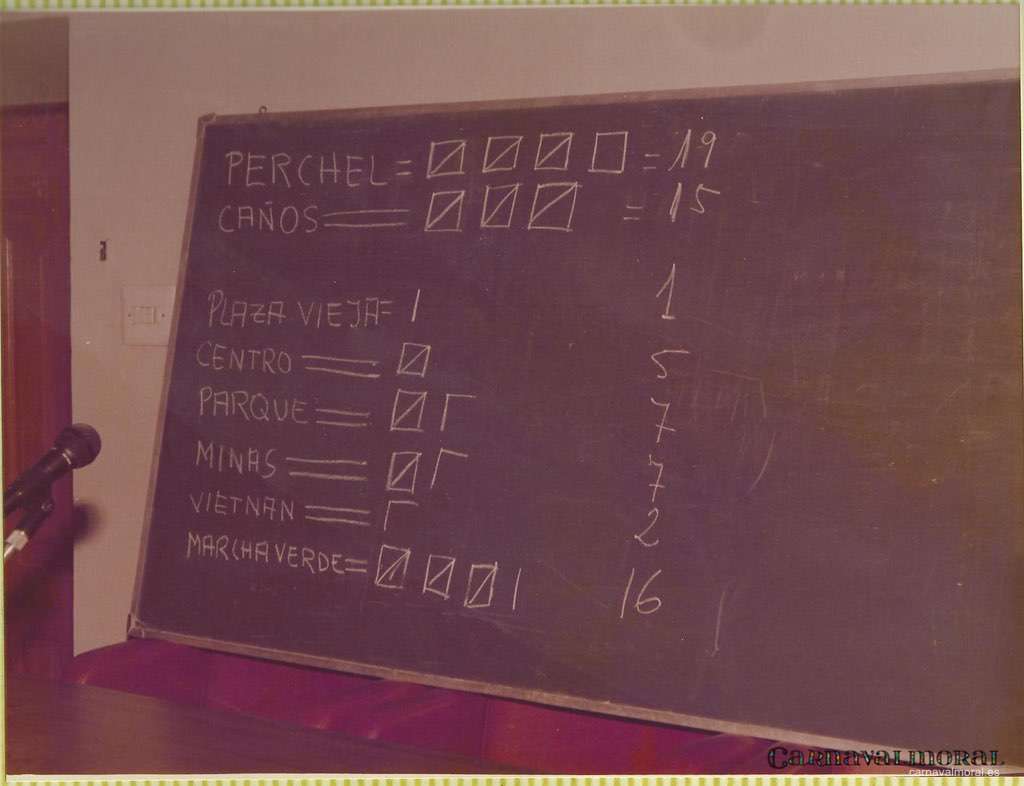 PERCHEL = = 19
CAÑOS = = 15
PLAZA VIEJA = 1
CENTRO = 5
PARQUE = 7
MINAS = 7
VIETNAN = 2
MARCHA VERDE = 16
CARNAVALMORAL
carnavalmoral.es